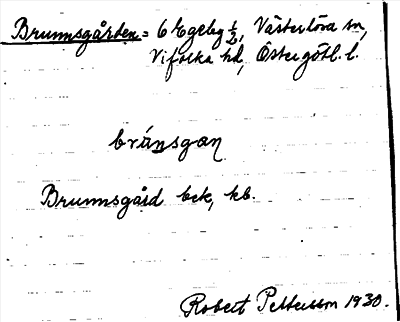 Brunnsgården = 6 Egeby 1/2, Västerlösa sn,
Vifolka hd, Östergötl. l.
brúnsgan
Brunnsgård bck, kb.
Robert Pettersson 1930.